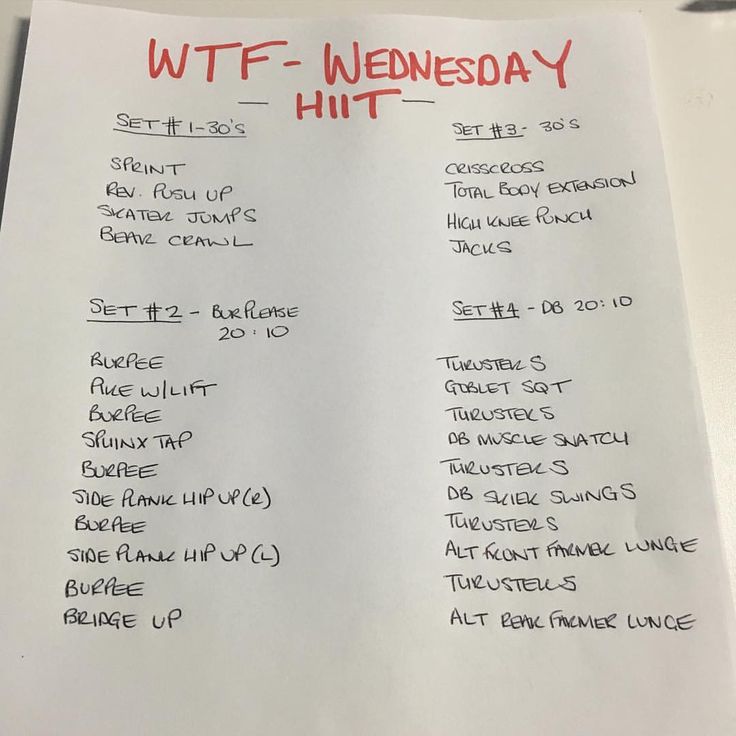 WTF - WEDNESDAY
- HIIT -
SET #1 - 30'S
SPRINT
REV. PUSH UP
SKATER JUMPS
BEAR CRAWL
SET #2 - BURPLEASE
20:10
BURPEE
PIKE W/LIFT
BURPEE
SPHINX TAP
BURPEE
SIDE PLANK HIP UP (R)
BURPEE
SIDE PLANK HIP UP (L)
BURPEE
BRIDGE UP
SET #3 - 30'S
CRISSCROSS
TOTAL BODY EXTENSION
HIGH KNEE PUNCH
JACKS
SET #4 - DB 20:10
THRUSTERS
GOBLET SQT
THRUSTERS
DB MUSCLE SNATCH
THRUSTERS
DB SKIER SWINGS
THRUSTERS
ALT FRONT FARMER LUNGE
THRUSTERS
ALT REAR FARMER LUNGE